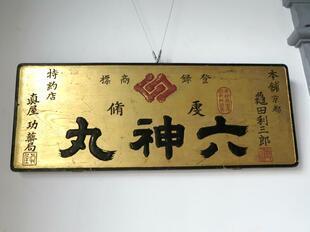 本舗 京都
龜田利三郎
登録商標
虔脩
六神丸
特約店
眞屋 功薬局